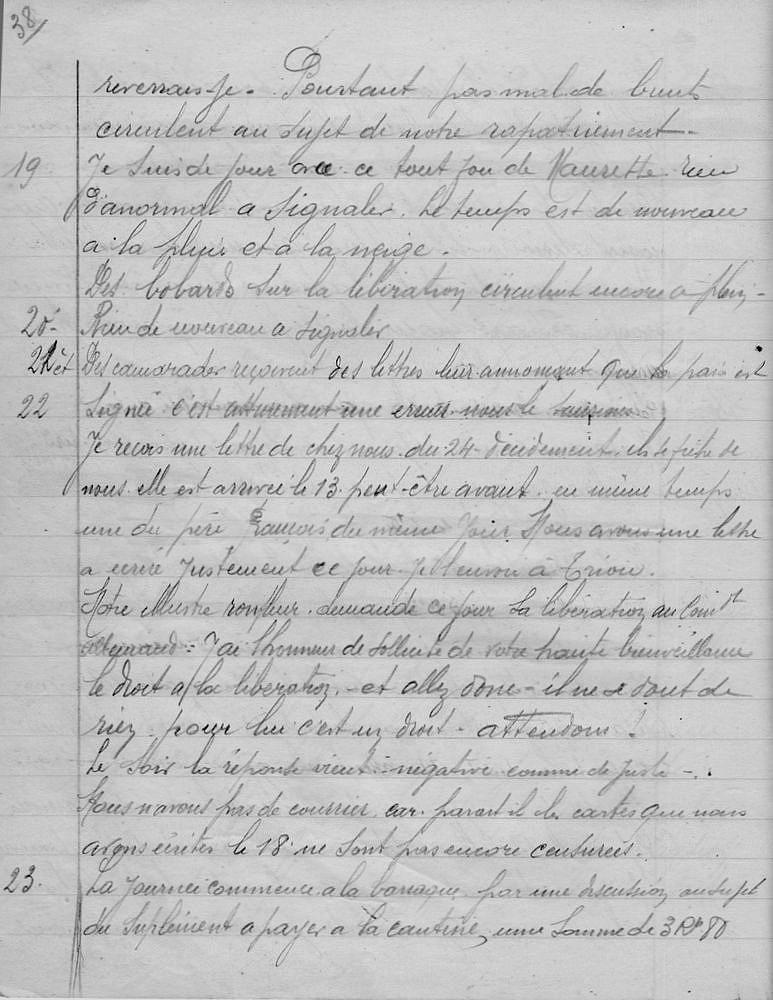 38/
reverrais-je. Pourtant pas mal de bruits
circulent au sujet de notre rapatriement.
19 Je suis de jour avec ce tout fou de Naurette rien
d'anormal a signaler. Le temps est de nouveau
a la pluie et a la neige.
Des bobards sur la libération circulent encore a plein -
20 - Rien de nouveau a signaler
21 et Des camarades reçoivent des lettres leur annonçant que la paix est
22 signée c'est une erreur nous le
Je reçois une lettre de chez nous du 24 décidement ils se fiche de
nous elle est arrivée le 13 peut-être avant en même temps
une du père François du même jour. Nous avons une lettre
a ecrire justement ce jour je l'envoi à
Notre illustre ronfleur demande ce jour sa libération au Comdt
allemand : J'ai l'honneur de sollicité de votre haute bienveillance
le droit a la libération, - et allez donc - il ne se dout de
rien pour lui c'est un droit - attendons !
Le soir la réponse vient négative comme de juste - .
Nous n'avons pas de courrier car parait il les cartes que nous
avons écrites le 18 ne sont pas encore censurées.
23. La journée commence a la baraque par une discussion au sujet
du suplément a payer a la cantine, une somme de 3 80